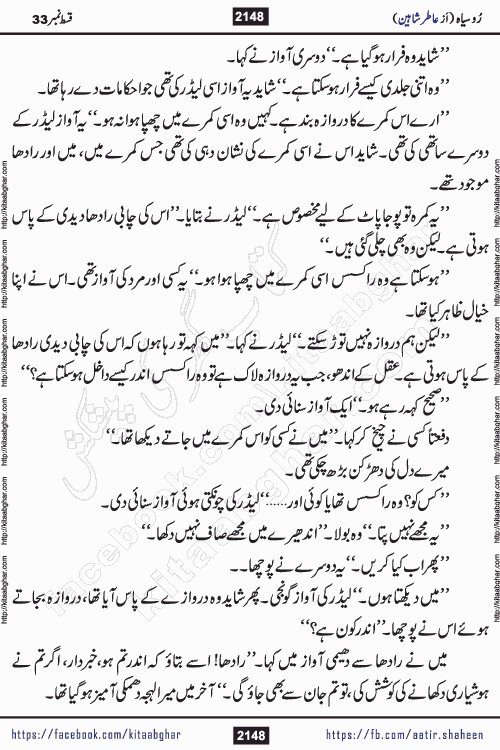 رُوسیاہ (از عاطر شاہین)
2148
قسط نمبر 33
’’شاید وہ فرار ہو گیا ہے۔‘‘ دوسری آواز نے کہا۔
’’وہ اتنی جلدی کیسے فرار ہو سکتا ہے۔‘‘ شاید یہ آواز اسی لیڈر کی تھی جو احکامات دے رہا تھا۔
’’ارے اس کمرے کا دروازہ بند ہے۔ کہیں وہ اسی کمرے میں چھپا ہوا نہ ہو۔‘‘ یہ آواز لیڈر کے
دوسرے ساتھی کی تھی۔ شاید اس نے اسی کمرے کی نشان دہی کی تھی جس کمرے میں، میں اور رادھا
موجود تھے۔
’’یہ کمرہ تو پوجا پاٹ کے لیے مخصوص ہے۔‘‘ لیڈر نے بتایا۔ ’’اس کی چابی رادھا دیدی کے پاس
ہوتی ہے۔ لیکن وہ بھی چلی گئی ہیں۔‘‘
’’ہو سکتا ہے وہ راکسس اسی کمرے میں چھپا ہوا ہو۔‘‘ یہ کسی اور مرد کی آواز تھی۔ اس نے اپنا
خیال ظاہر کیا تھا۔
’’لیکن ہم دروازہ نہیں توڑ سکتے۔‘‘ لیڈر نے کہا۔ ’’میں کہہ تو رہا ہوں کہ اس کی چابی دیدی رادھا
کے پاس ہوتی ہے۔ عقل کے اندھو، جب یہ دروازہ لاک ہے تو وہ راکسس اندر کیسے داخل ہو سکتا ہے؟‘‘
’’صحیح کہہ رہے ہو۔‘‘ ایک آواز سنائی دی۔
دفعتاً کسی نے چیخ کر کہا۔ ’’میں نے کسی کو اس کمرے میں جاتے دیکھا تھا۔‘‘
میرے دل کی دھڑکن بڑھ چکی تھی۔
’’کس کو؟ وہ راکسس تھا یا کوئی اور......‘‘ لیڈر کی چونکتی ہوئی آواز سنائی دی۔
’’یہ مجھے نہیں پتا۔‘‘ وہ بولا۔ ’’اندھیرے میں مجھے صاف نہیں دکھا۔‘‘
’’پھر اب کیا کریں۔‘‘ یہ دوسرے نے پوچھا۔۔
’’میں دیکھتا ہوں۔‘‘ لیڈر کی آواز گونجی۔ پھر شاید وہ دروازے کے پاس آیا تھا، دروازہ بجاتے
ہوئے اس نے پوچھا۔ ’’اندر کون ہے؟‘‘
میں نے رادھا سے دھیمی آواز میں کہا۔ ’’رادھا! اسے بتاؤ کہ اندر تم ہو، خبردار، اگر تم نے
ہوشیاری دکھانے کی کوشش کی، تو تم جان سے بھی جاؤ گی۔‘‘ آخر میں میرا لہجہ دھمکی آمیز ہو گیا تھا۔
کتاب گھر کی پیشکش
facebook.com/kitaabghar
http://kitaabghar.com
http://kitaabghar.com
http://kitaabghar.com
http://kitaabghar.com
http://kitaabghar.com
http://kitaabghar.com
http://kitaabghar.com
http://kitaabghar.com
http://kitaabghar.com
http://kitaabghar.com
http://kitaabghar.com
http://kitaabghar.com
https://facebook.com/kitaabghar
2148
https://fb.com/aatir.shaheen